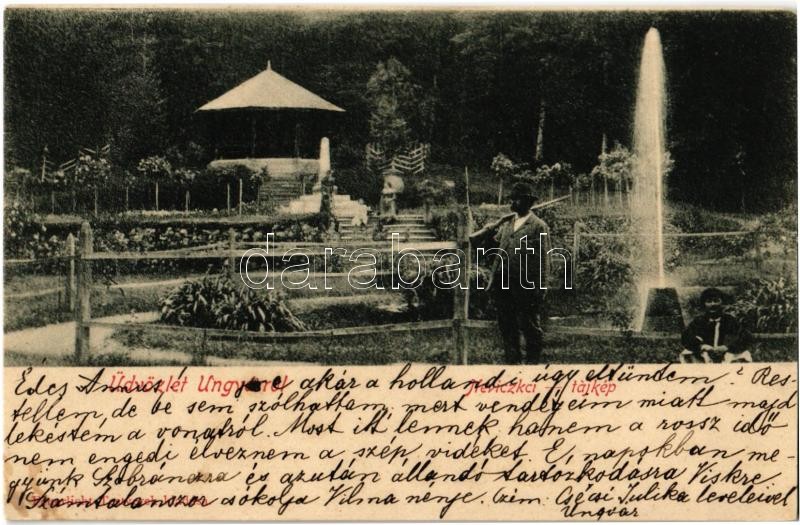 darabanth
Üdvözlet Ungvárról
Neviczkei tájkép
Édes ugye akár a hollandi úgy eltüntem? Res-
teltem, de be sem szólhattam, mert vendégeim miatt majd
lekéstem a vonatról. Most itt lennék, ha nem a rossz idő
nem engedi élveznem a szép vidéket. E napokban me-
gyünk Szobránczra és azután állandó tartozkodásra Viskre
csókolja Vilma nénje. Czím: Julika leveleivel
Ungvár